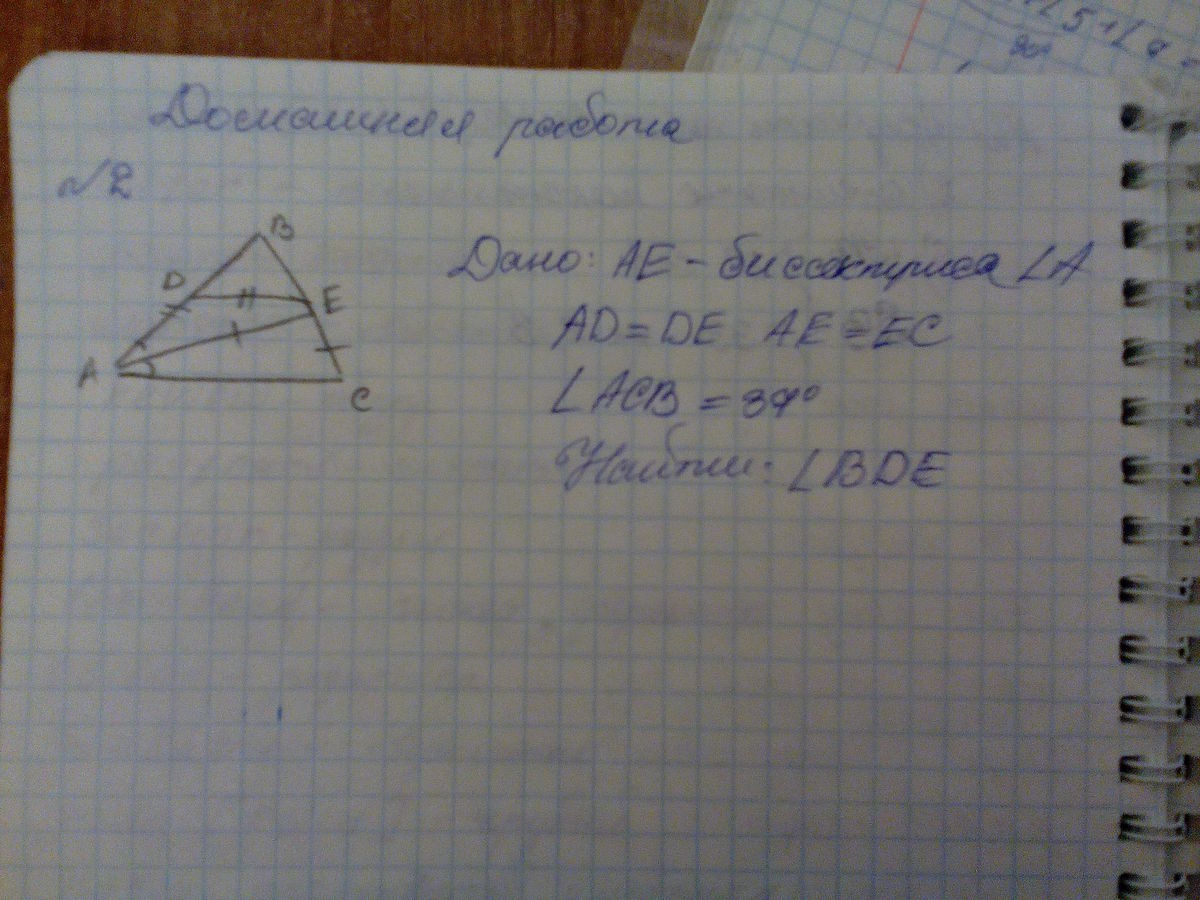 Домашняя работа
№2
B
D
E
A
C
Дано: AE - биссектриса ∠A
AD = DE AE = EC
∠ACB = 37°
Найти: ∠BDE
90°